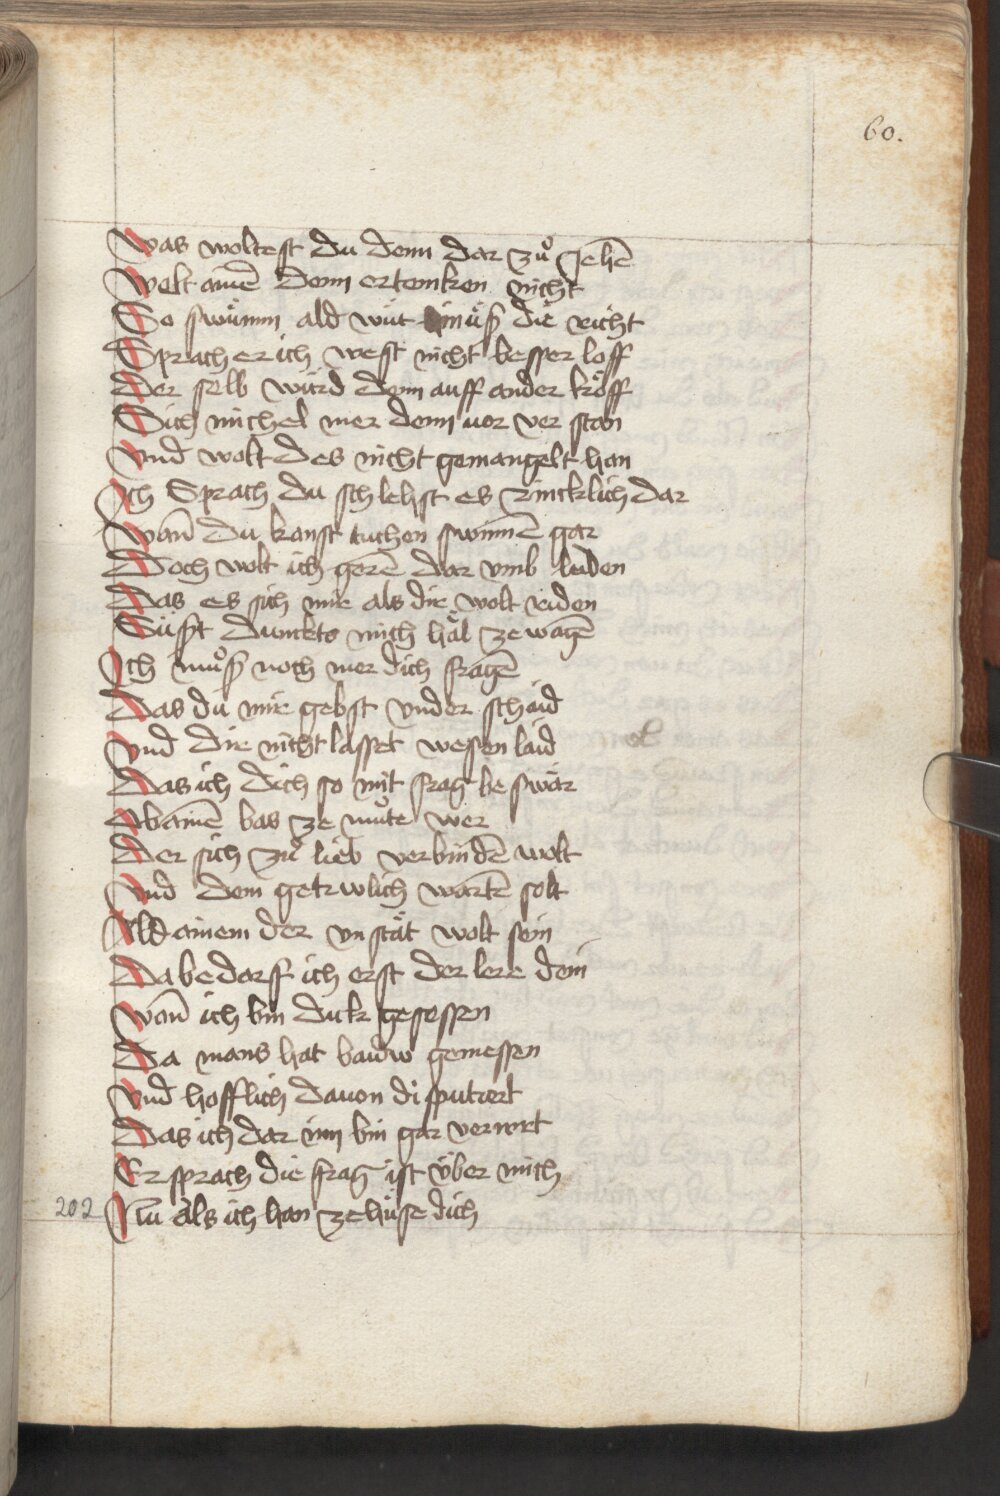 60.
Was woltest du denn dar zuͦ Jehē
Welt ainē denn ertrinken nicht
So swùmm ald wùt muͤsz die richt
Sprach er ich west nicht besser loff
Der selb wùrd denn auff ander kroͤff
Sich michel mer denn uor ver stan
Vnd wolt des nicht gemangelt han
Ich Sprach du schlehst es zincklich dar
Wañ du kanst tuchen swimē gar
Doch wolt ich gerē dar vmb leiden
Das es sich mir als dir wolt riden
Suͤszt duncktz mich haͤl ze wagē
Ich muͦsz noch mer dich fragē
Das du mir gebst vnder schaid
Vnd dir nicht lasset wesen laid
Das ich dich so mit frag be swaͤr
Ob ainē bas ze muͦte wer
Der sich zuͦ lieb verbindē wolt
Vnd dem getrwlich wartē solt
Ald ainem der vn staͤt wolt sein
Da bedarf ich erst der lere dein
Wañ ich bin dick gesessen
Da mans hat gemessen
Vnd hofflich dauon disputiert
Das ich dar inn bin gar verwrt
Er sprach die frag ist ùber mich
202 Nu als ich han ze huse dich